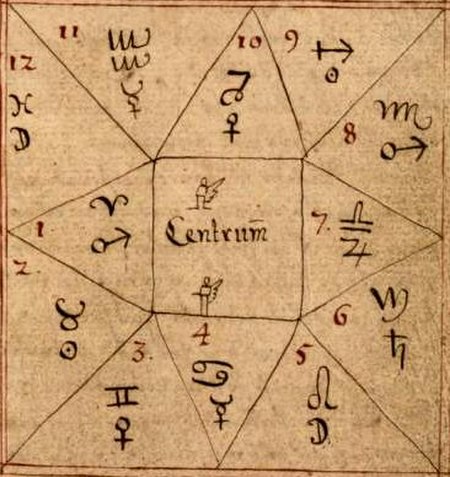 11
♒
☿
10
♑
♀
9
♐
☉
12
♓
☽
8
♏
♂
1
♈
♂
Centrum̄
7.
♎
♃
2.
♉
☉
6
♍
♄
3.
♊
♀
4
♋
☿
5
♌
☽